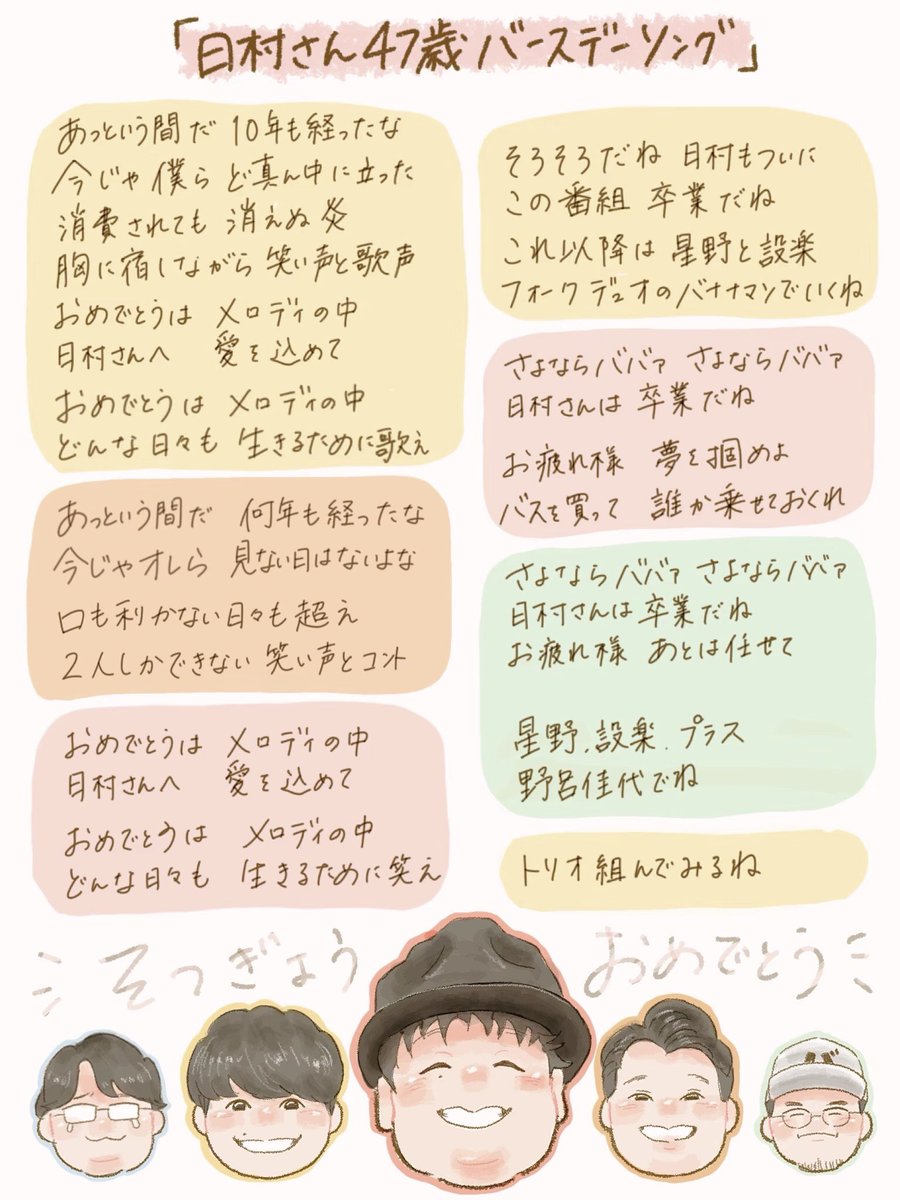 「日村さん47歳バースデーソング」
あっという間だ 10年も経ったな
今じゃ僕ら ど真ん中に立った
消費されても 消えぬ炎
胸に宿しながら 笑い声と歌声
おめでとうは メロディの中
日村さんへ 愛を込めて
おめでとうは メロディの中
どんな日々も 生きるために歌え
あっという間だ 何年も経ったな
今じゃオレら 見ない日はないよな
口も利かない日々も超え
2人しかできない 笑い声とコント
おめでとうは メロディの中
日村さんへ 愛を込めて
おめでとうは メロディの中
どんな日々も 生きるために笑え
そろそろだね 日村もついに
この番組 卒業だね
これ以降は 星野と設楽
フォークデュオのバナナマンでいくね
さよならババァ さよならババァ
日村さんは 卒業だね
お疲れ様 夢を掴めよ
バスを買って 誰か乗せておくれ
さよならババァ さよならババァ
日村さんは 卒業だね
お疲れ様 あとは任せて
星野、設楽、プラス
野呂佳代でね
トリオ組んでみるね
そつぎょう おめでとう
バ